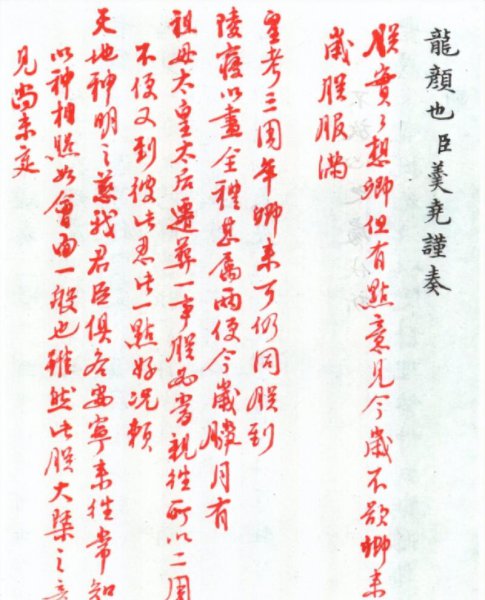 龍顏也臣羹堯謹奏
朕實々想卿但有點意見今歲不欲卿來
歲朕服滿
皇考三周年卿來可仍同朕到
陵寢以盡全禮甚屬兩便今歲臘月有
祖母太皇太后遷葬一事朕必當親往所以二周
不便又到彼此忍此一點好況賴
天地神明之慈我君臣俱各安寧來往常知
以神相照如會面一般也雖然此朕大槩之意
見尚未定